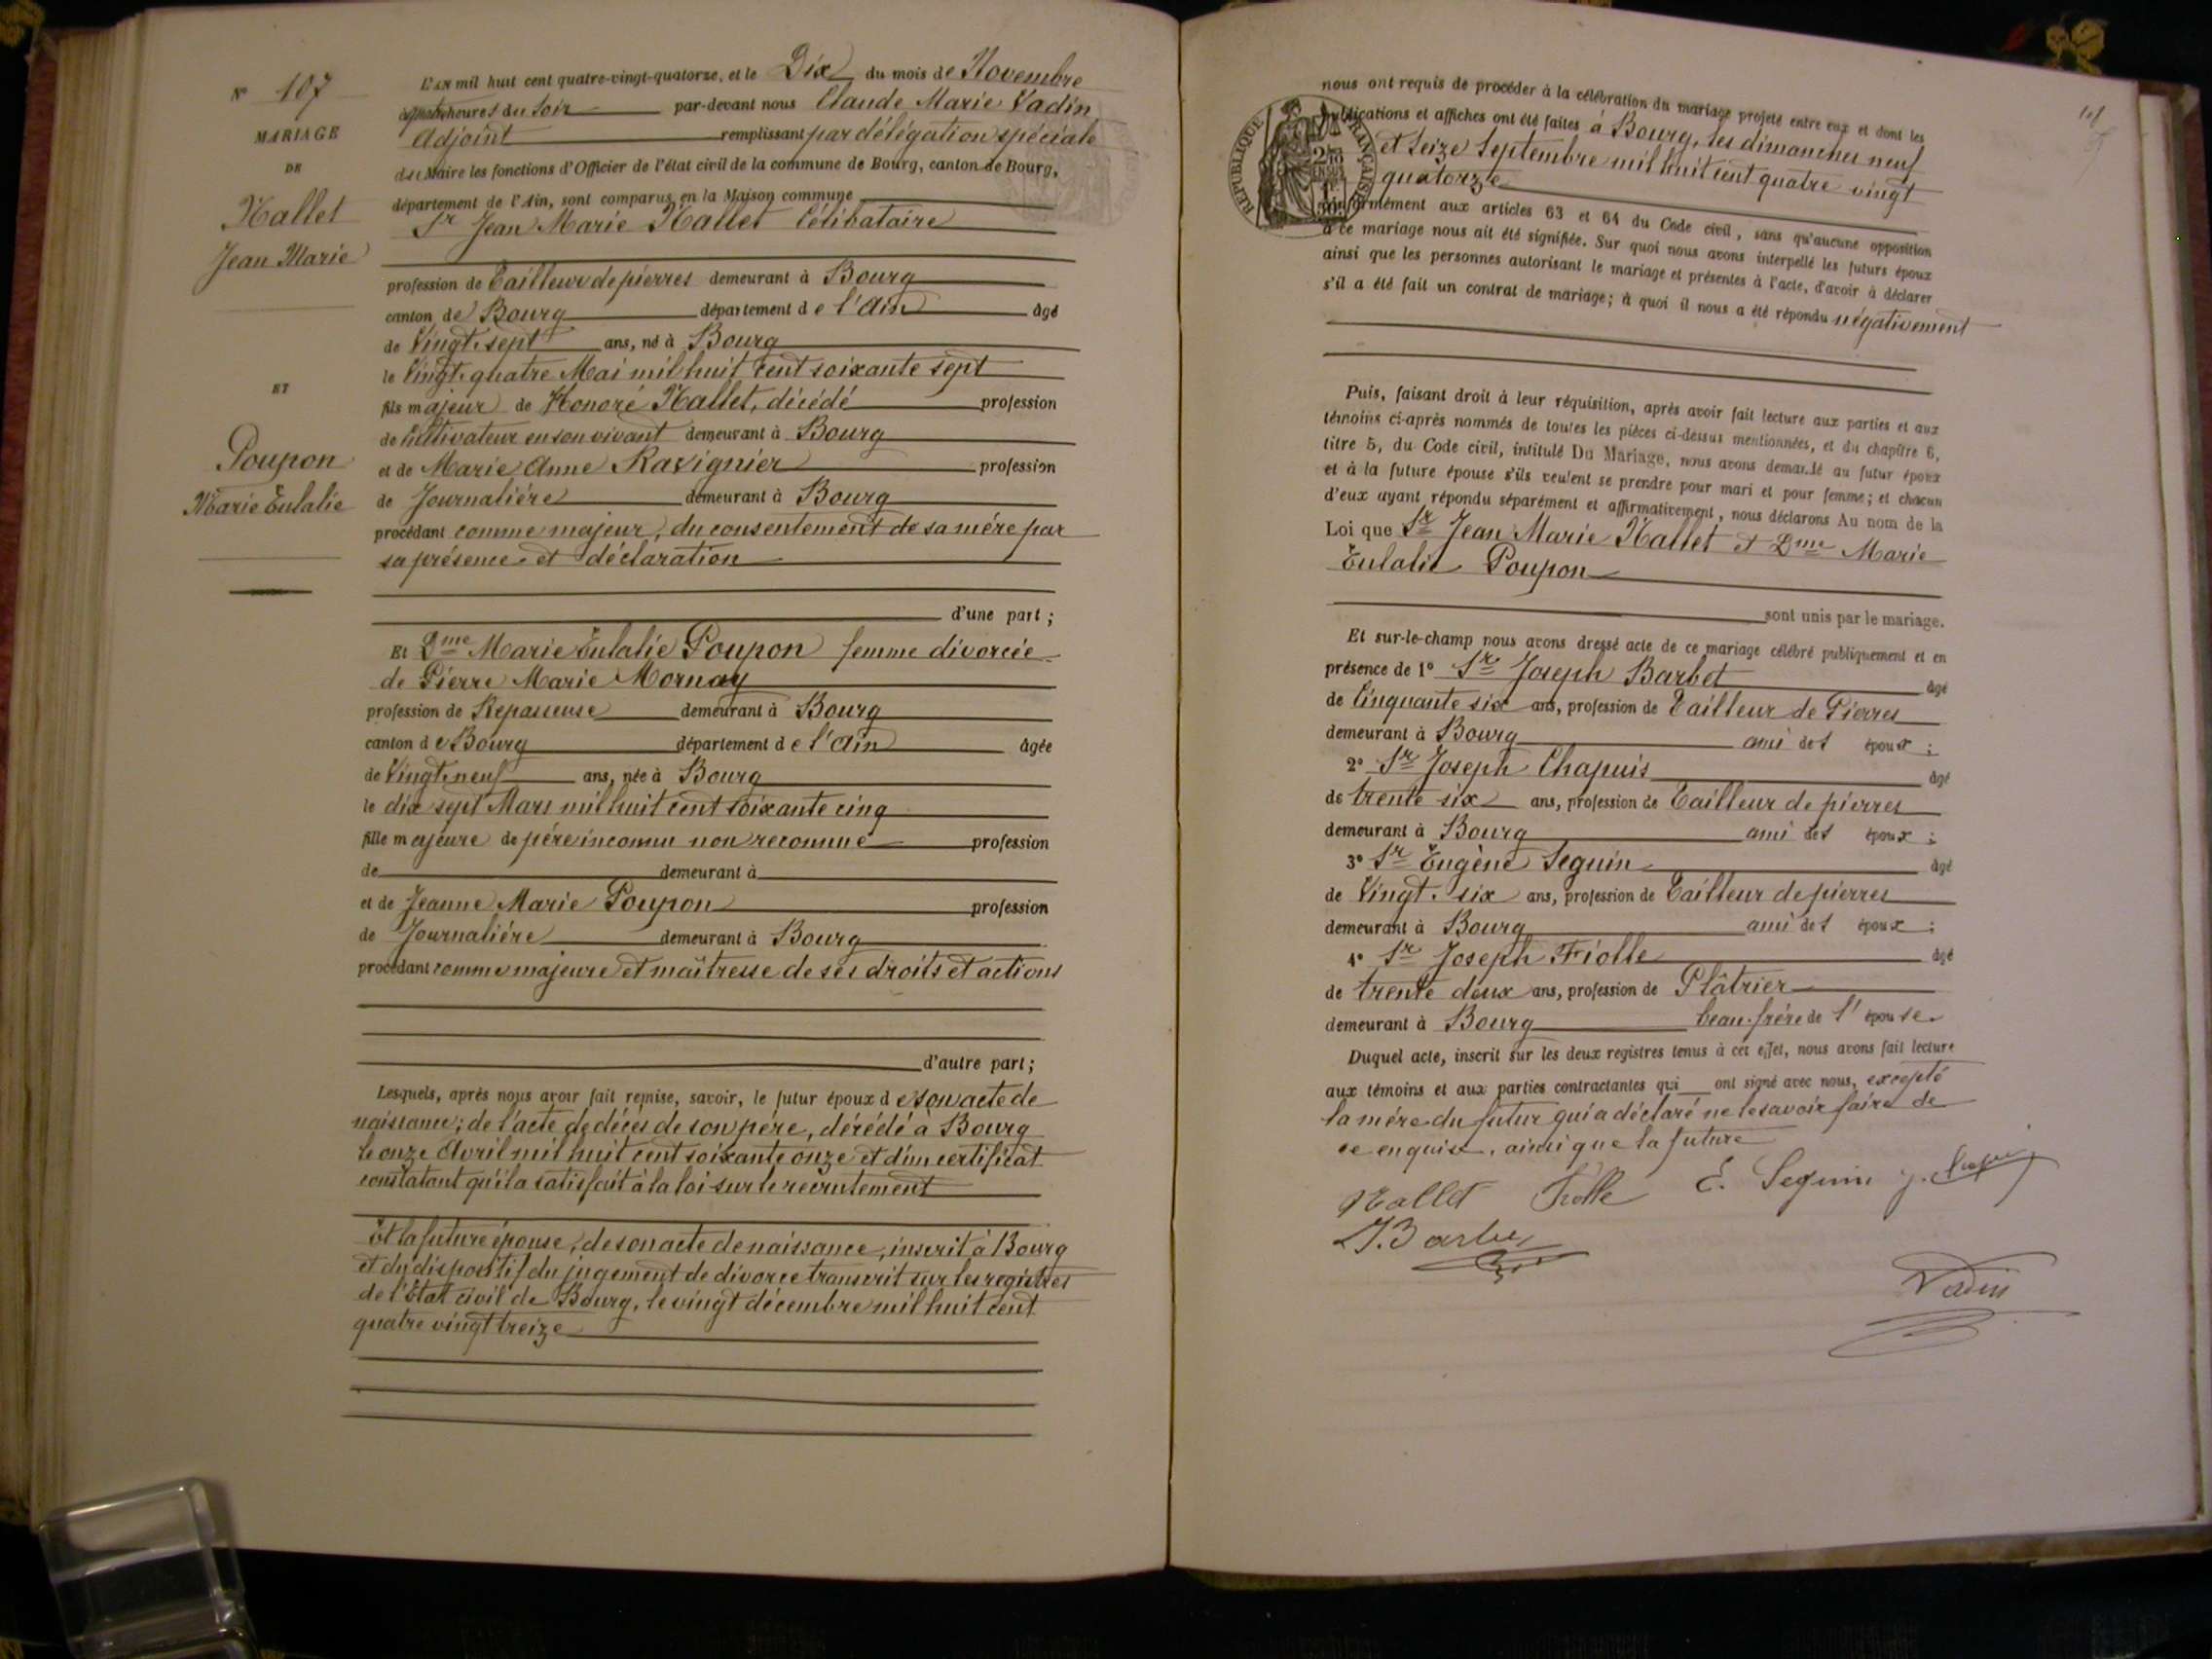 N° 107
MARIAGE
DE
Hallet
Jean Marie
ET
Poupon
Marie Eulalie
L'an mil huit cent quatre-vingt-quatorze, et le Dix du mois de Novembre
à quatre heures du Soir par-devant nous Claude Marie Vadin
Adjoint remplissant par délégation spéciale
du Maire les fonctions d'Officier de l'état civil de la commune de Bourg, canton de Bourg,
département de l'Ain, sont comparus en la Maison commune
Sr Jean Marie Hallet Célibataire
profession de Tailleur de pierres demeurant à Bourg
canton de Bourg département de l'Ain âgé
de Vingt-sept ans, né à Bourg
le Vingt-quatre Mai mil huit cent soixante sept
fils majeur de Honoré Hallet, décédé profession
de Cultivateur en son vivant demeurant à Bourg
et de Marie Anne Ravignier profession
de Journalière demeurant à Bourg
procédant comme majeur, du consentement de sa mère par
sa présence et déclaration
d'une part ;
Et Dme Marie Eulalie Poupon femme divorcée
de Pierre Marie Mornay
profession de Repasseuse demeurant à Bourg
canton de Bourg département de l'Ain âgée
de Vingt-neuf ans, née à Bourg
le dix sept Mars mil huit cent soixante cinq
fille majeure de père inconnu non reconnue profession
de demeurant à
et de Jeanne Marie Poupon profession
de Journalière demeurant à Bourg
procédant comme majeure et maîtresse de ses droits et actions
d'autre part ;
Lesquels, après nous avoir fait remise, savoir, le futur époux de son acte de
naissance ; de l'acte de décès de son père, décédé à Bourg
le onze Avril mil huit cent soixante onze et d'un certificat
constatant qu'il a satisfait à la loi sur le recrutement
Et la future épouse, de son acte de naissance, inscrit à Bourg
et du dispositif du jugement de divorce transcrit sur les registres
de l'Etat civil de Bourg, le vingt décembre mil huit cent
quatre vingt treize
101
RÉPUBLIQUE FRANÇAISE
nous ont requis de procéder à la célébration du mariage projeté entre eux et dont les
publications et affiches ont été faites à Bourg, les dimanches neuf
et Seize Septembre mil huit cent quatre vingt
quatorze
conformément aux articles 63 et 64 du Code civil, sans qu'aucune opposition
à ce mariage nous ait été signifiée. Sur quoi nous avons interpellé les futurs époux
ainsi que les personnes autorisant le mariage et présentes à l'acte, d'avoir à déclarer
s'il a été fait un contrat de mariage ; à quoi il nous a été répondu négativement
Puis, faisant droit à leur réquisition, après avoir fait lecture aux parties et aux
témoins ci-après nommés de toutes les pièces ci-dessus mentionnées, et du chapitre 6,
titre 5, du Code civil, intitulé Du Mariage, nous avons demandé au futur époux
et à la future épouse s'ils veulent se prendre pour mari et pour femme ; et chacun
d'eux ayant répondu séparément et affirmativement, nous déclarons Au nom de la
Loi que Sr Jean Marie Hallet et Dme Marie
Eulalie Poupon
sont unis par le mariage.
Et sur-le-champ nous avons dressé acte de ce mariage célébré publiquement et en
présence de 1° Sr Joseph Barbet âgé
de Cinquante six ans, profession de Tailleur de Pierres
demeurant à Bourg ami des époux ;
2° Sr Joseph Chapuis âgé
de trente six ans, profession de Tailleur de pierres
demeurant à Bourg ami des époux ;
3° Sr Eugène Seguin âgé
de Vingt-six ans, profession de Tailleur de pierres
demeurant à Bourg ami des époux ;
4° Sr Joseph Fiolle âgé
de trente deux ans, profession de Plâtrier
demeurant à Bourg beau-frère de l'épouse.
Duquel acte, inscrit sur les deux registres tenus à cet effet, nous avons fait lecture
aux témoins et aux parties contractantes qui ont signé avec nous, excepté
la mère du futur qui a déclaré ne le savoir faire de
ce enquise, ainsi que la future
Hallet Fiolle E. Seguin
J. Barbet
Vadin